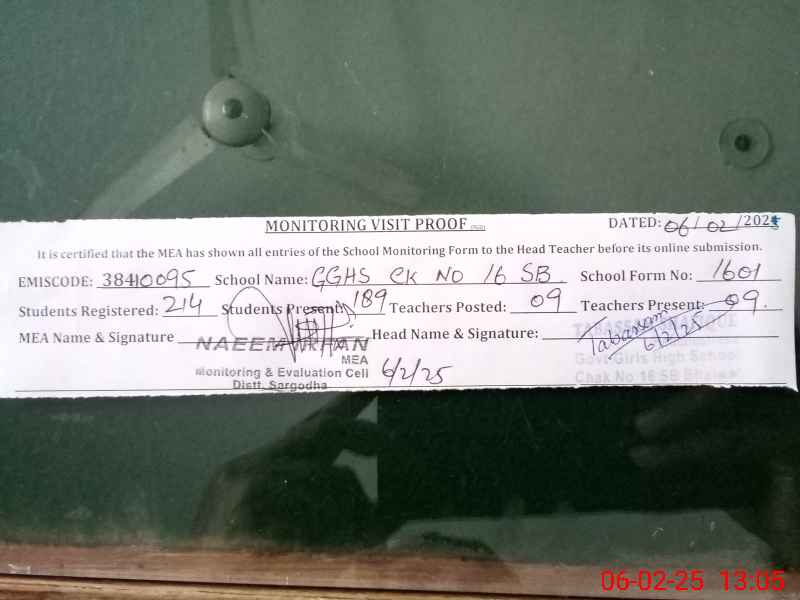 MONITORING VISIT PROOF DATED: 06/02/2025
It is certified that the MEA has shown all entries of the School Monitoring Form to the Head Teacher before its online submission.
EMISCODE: 38410095 School Name: GGHS CK NO 16 SB School Form No: 1601
Students Registered: 214 Students Present: 189 Teachers Posted: 09 Teachers Present: 09.
MEA Name & Signature Head Name & Signature: Tabassam 6/2/25
NAEEM KHAN
MEA
Monitoring & Evaluation Cell 6/2/25
Distt. Sargodha
Govt Girls High School
Chak No 16 SB
06-02-25 13:05